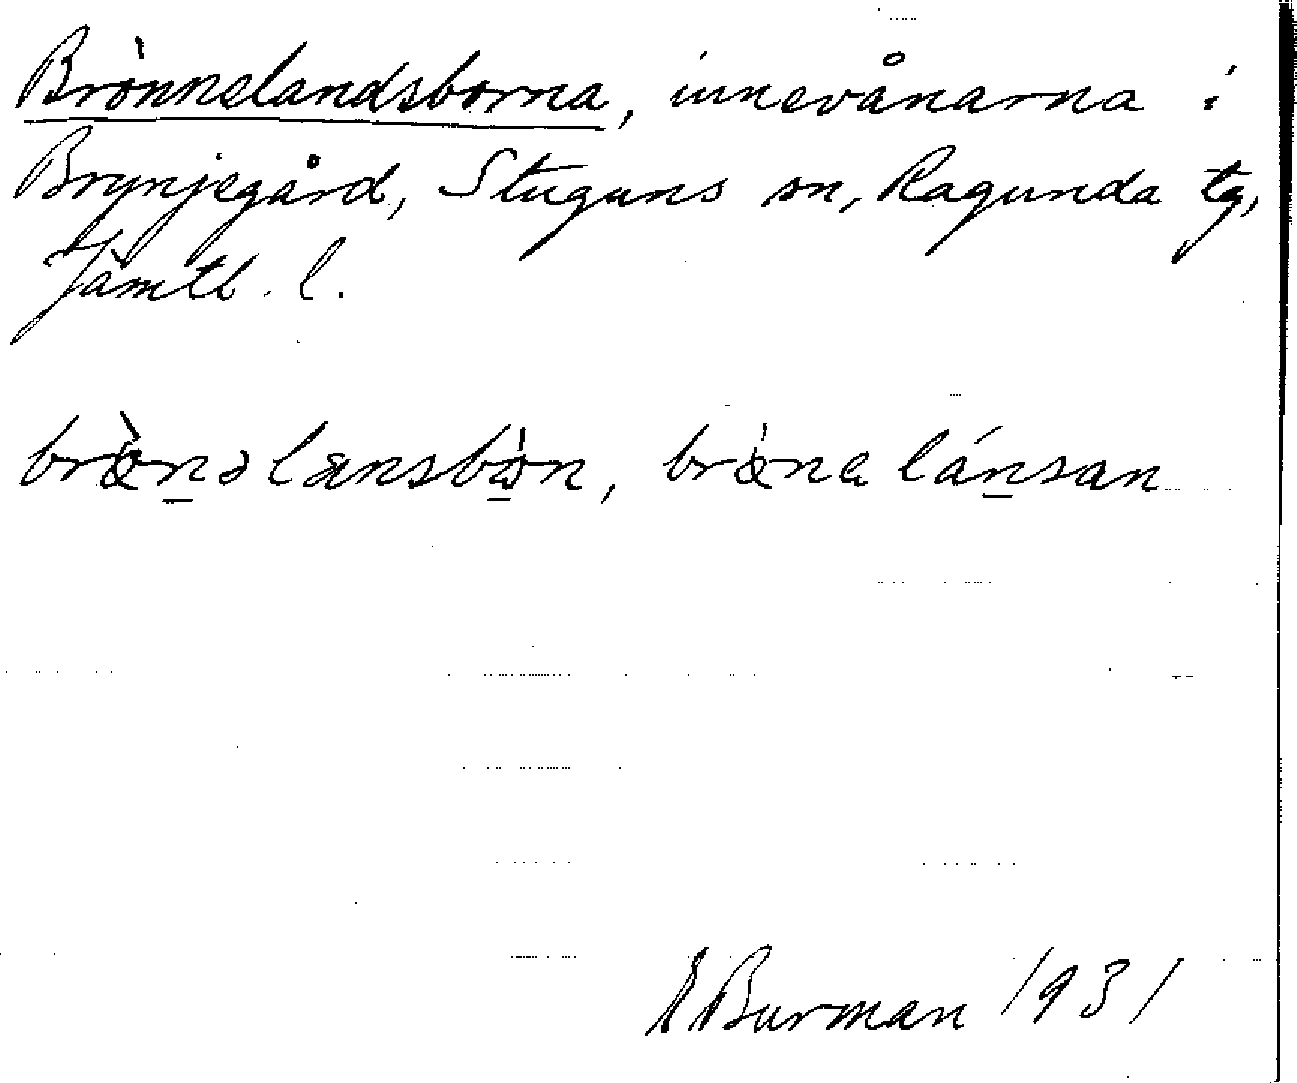 Brönnelandsborna, innevånarna i
Brynjegård, Stuguns sn, Ragunda tg,
Jämtl. l.
brœ̀n̲əlænsbò̲n, brœ̀na lán̲san
E Burman 1931